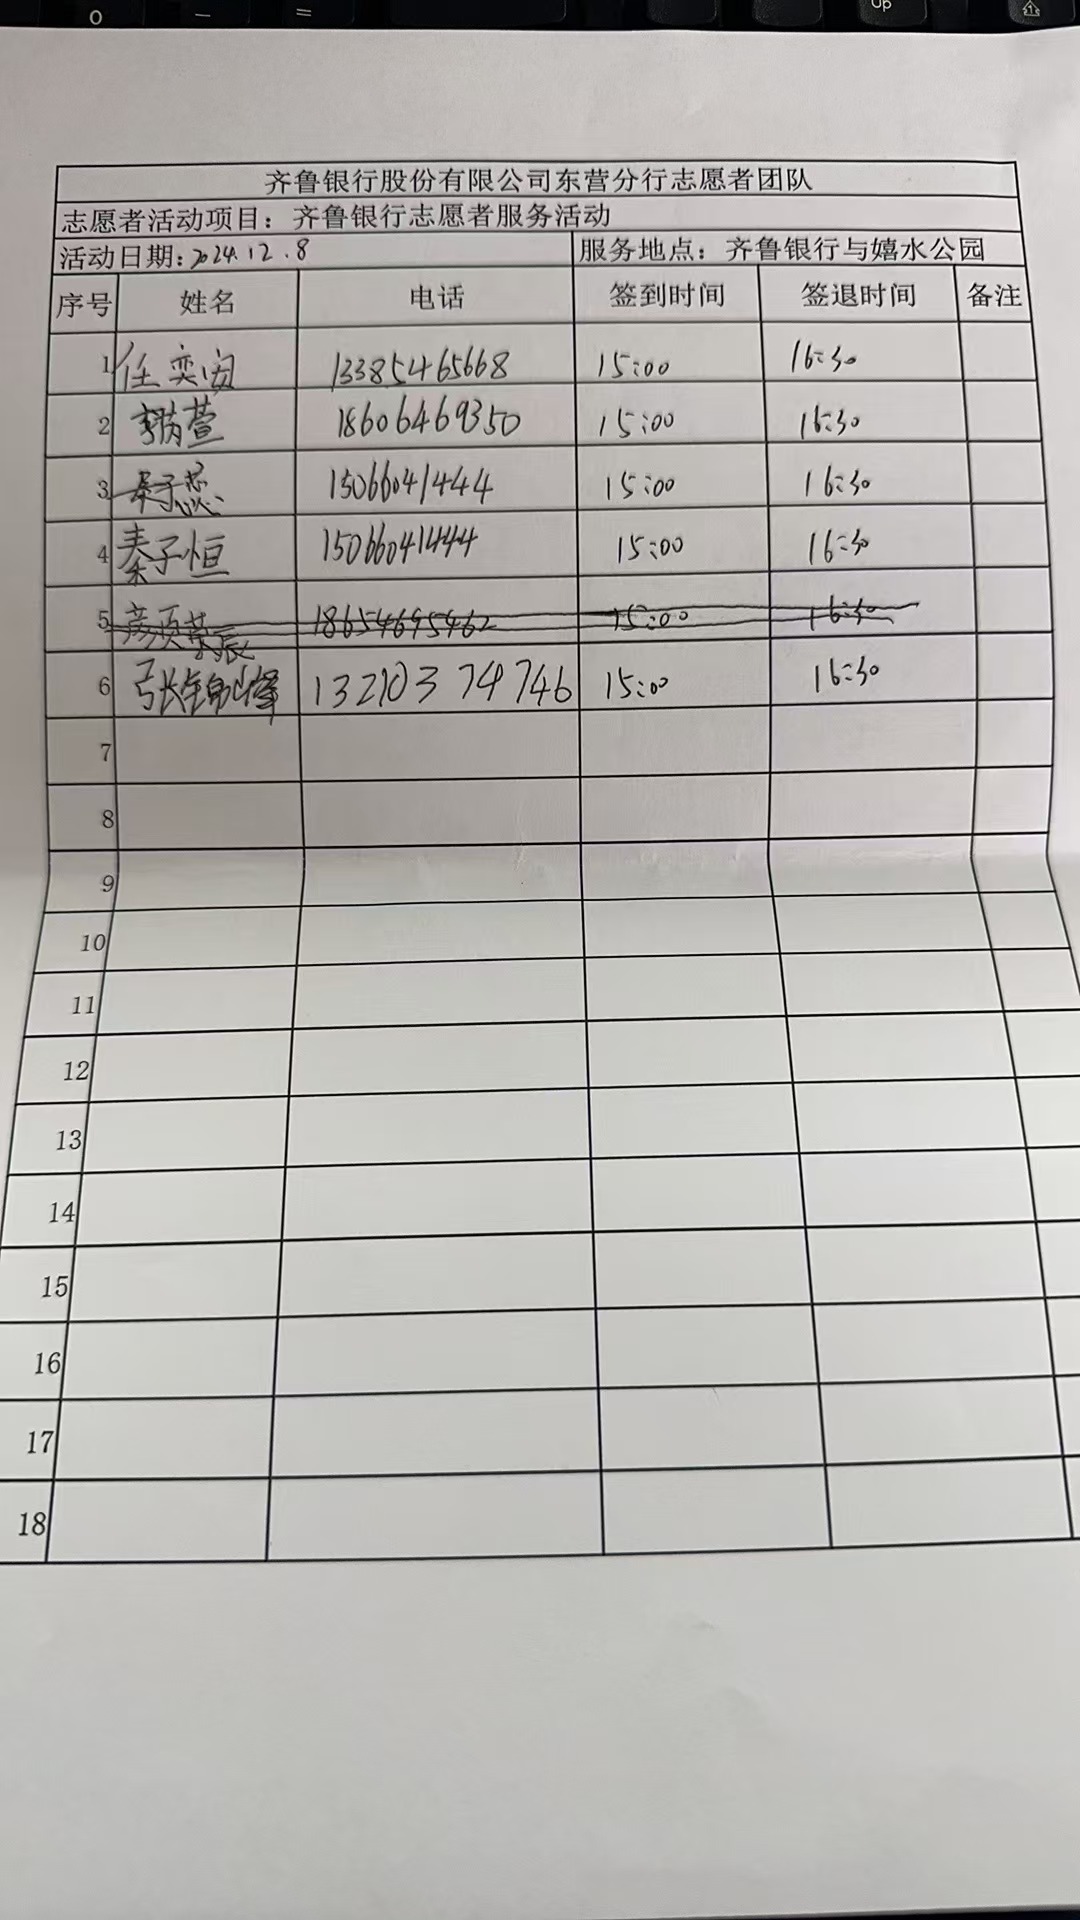 齐鲁银行股份有限公司东营分行志愿者团队
志愿者活动项目：齐鲁银行志愿者服务活动
活动日期：2024.12.8 服务地点：齐鲁银行与嬉水公园
序号 姓名 电话 签到时间 签退时间 备注
1 任奕 13385465668 15:00 16:30
2 萱 18606469350 15:00 16:30
3 秦子 15066041444 15:00 16:30
4 秦子恒 15066041444 15:00 16:30
5 18654695462 15:00 16:30
6 张锦峰 13210374746 15:00 16:30
7
8
9
10
11
12
13
14
15
16
17
18